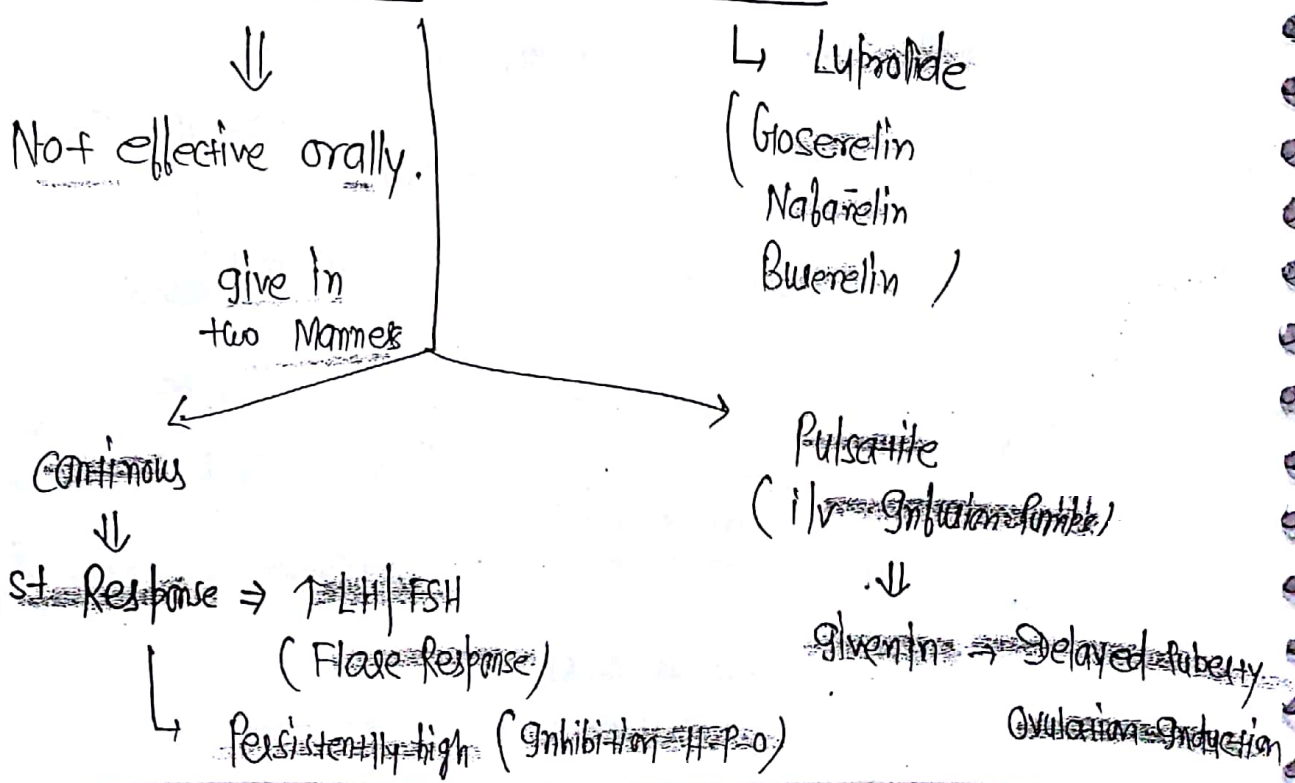 ⇓
Not effective orally.
give in
two Manners
↳ Luprolide
(Goserelin
Nafarelin
Buserelin)
Continous
⇓
St. Response ⇒ ↑ LH/FSH
(Flare Response)
↳ Persistently high (Inhibition H-P-O)
Pulsatile
(i/v Infusion Pumps)
⇓
given in → Delayed Puberty
Ovulation Induction